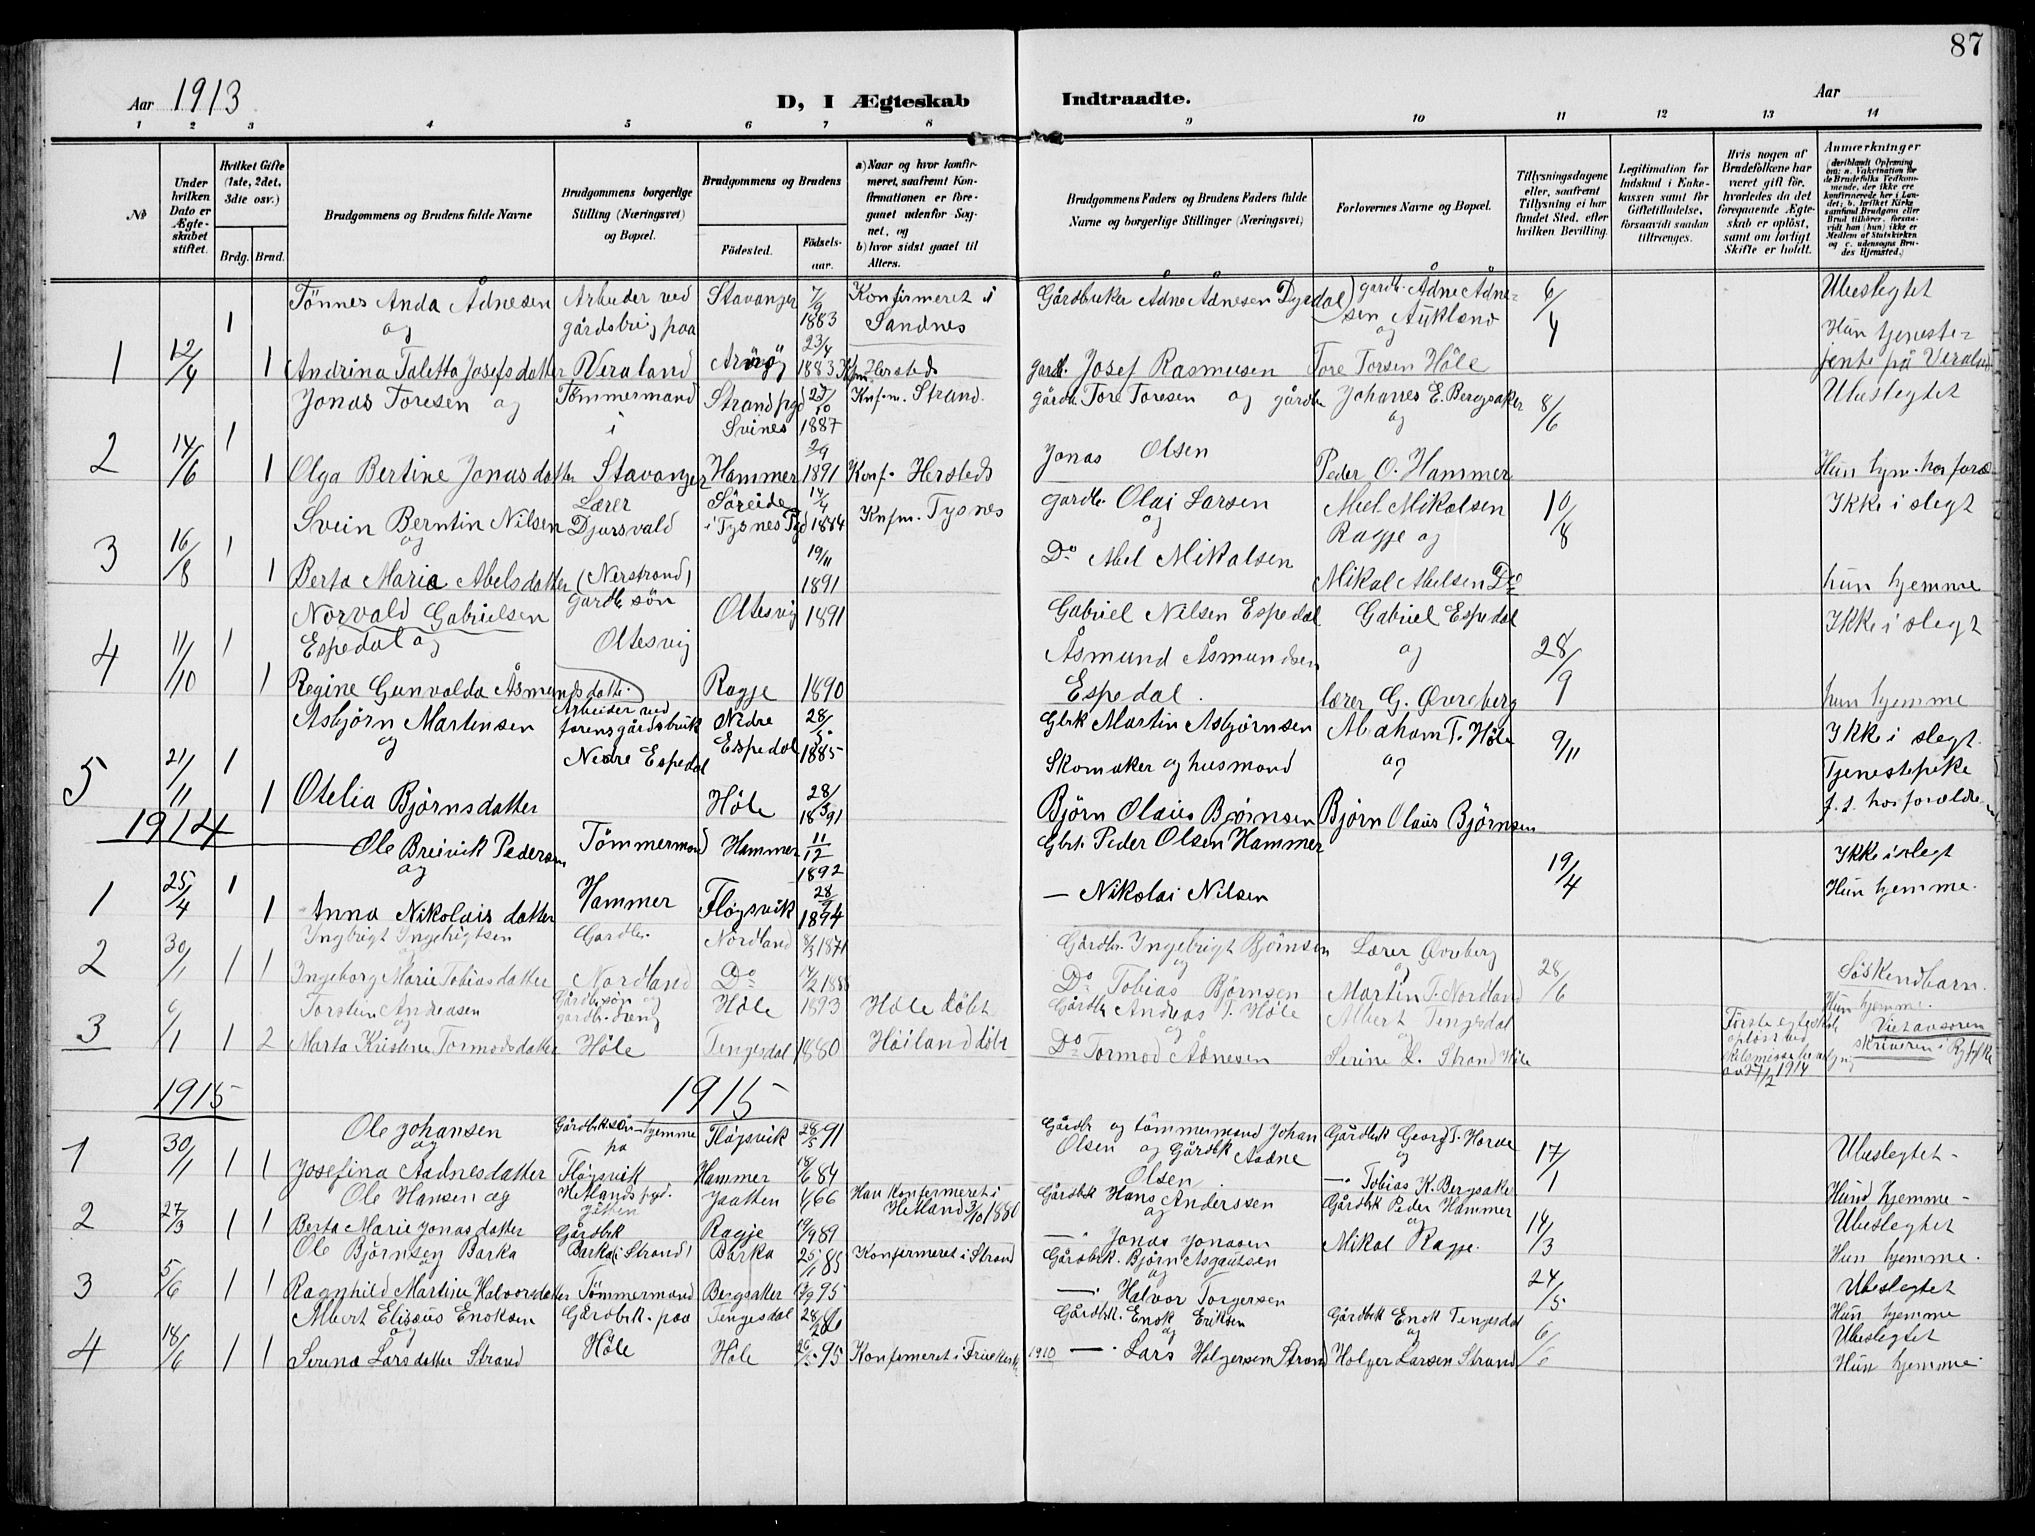 87
Aar 1913
D, I Ægteskab Indtraadte.
Aar
1 2 3 4 5 6 7 8 9 10 11 12 13 14
№
Under hvilken Dato er Ægteskabet stiftet.
Hvilket Gifte (1ste, 2det, 3die osv.)
Brdg. Brud.
Brudgommens og Brudens fulde Navne
Brudgommens borgerlige Stilling (Næringsvei) og Bopæl.
Brudgommens og Brudens
Fødested.
Fødselsaar.
a) Naar og hvor konfirmeret, saafremt Konfirmationen er foregaaet udenfor Sognet, og
b) hvor sidst gaaet til Alters.
Brudgommens Faders og Brudens Faders fulde Navne og borgerlige Stillinger (Næringsvei)
Forlovernes Navne og Bopæl.
Tillysningsdagene eller, saafremt Tillysning ei har fundet Sted, efter hvilken Bevilling.
Legitimation for Indskud i Enkekassen samt for Giftetilladelse, forsaavidt saadan tiltrænges.
Hvis nogen af Brudefolkene har været gift før, hvorledes da det foregaaende Ægteskab er opløst, samt om lovligt Skifte er holdt.
Anmærkninger
Tönnes Anda Ådnesen Arbeider ved Stavanger 7/9 Konfirmeret i Gårdbruker Ådne Ådnesen Dysdal gardb. Ådne Ådne- 6/4 Ubeslegtet
og gårdsbrug paa 1883 Sandnes sen Aukland
1 12/4 1 1 Andrina Taletta Josefsdatter Veraland 23/4 1883 gardb. Josef Rasmusen Tore Torsen Höle Hun tjeneste-
jente på Veraland
Jonas Toresen og Tömmermand Strand pgd 23/10 Knfm. Strand. gårdb. Tore Toresen og gårdb. Johanes E. Bergsaker 8/6 Ubeslegtet
i Svines 1887 og
2 14/6 1 1 Olga Bertine Jonasdatter Stavanger Hammer 2/9 1891 Konf. Hersteds Jonas Olsen Peder O. Hammer Hun hjm. hos foræ.
Svein Berntin Nilsen Lærer Söreide 14/4 Knfm. Tysnes gardb. Olai Larsen Abel Mikalsen 10/8 Ikke i slegt
og Djursvald i Tysnes Pgd 1884 og Ragje og
3 16/8 1 1 Berta Maria Abelsdatter (Nerstrand) 19/11 1891 Do Abel Mikalsen Mikal Abelsen Do hun hjemme
Norvald Gabrielsen Gardb. sön Oltesvig 1891 Gabriel Nilsen Espedal Gabriel Espedal Ikke i slegt
Espedal og Oltesvig Åsmund Åsmundsen og 28/9
4 11/10 1 1 Regine Gunvalda Åsmundsdatter Ragje 1890 Espedal. lærer G. Øvreberg hun hjemme
Asbjörn Martinsen Arbeider ved Nedre 28/5 Gbrk Martin Asbjørnsen Abraham T. Høle 9/11 Ikke i slegt.
og farens gårdsbruk Espedal 1885 Skomaker og husmand og Tjenestepike
5 21/11 1 1 Otelia Björnsdatter Nedre Espedal Höle 28/3 1891 Björn Olaus Bjørnsen Björn Olaus Björnsen f. t. hos forældre
1914
Ole Breivik Pedersen Tömmermand Hammer 11/12 1892 Gbrk. Peder Olsen Hammer 19/4 Ikke i slegt
og
1 25/4 1 1 Anna Nikolaisdatter Hammer Fløgsvik 28/9 1894 — Nikolai Nilsen Hun hjemme.
Ingbrigt Ingebrigtsen Gardbr. Nordland 8/3 1871 Gårdbr. Ingebrigt Björnsen Lærer Øvreberg
og og og
2 30/1 1 1 Ingeborg Marie Tobiasdatter Nordland Do 14/2 1888 Do Tobias Björnsen Martin T. Nordland 28/6 Söskendbarn.
Torstein Andreasen Gårdb. sön og Höle 1893 Höle döbt Gårdb. Andreas T. Höle Albert Tengesdal Hun hjemme.
og gårdbr. dreng og
3 6/1 1 2 Marta Kristene Tormodsdatter Höle Tengesdal 1880 Höiland döbt Do Tormod Ådnesen Serine L. Strand Höle Første egteskab oplöst ved av 27/2 1914 Viet av soren skriveren i Ryfylke
1915 1915
Ole Johansen Gårdbk. sön hjemme Fløgsvik 28/5 91 Gårdb. og tömmermand Johan Gårdbk Georg T. Horve
og pa Olsen og Gårdbk Aadne og 17/1 Ubeslegtet
1 30/1 1 1 Josefina Aadnesdatter Fløgsvik Hammer 18/6 84 Olsen. —"— Tobias K. Bergsaker Hund hjemme
Ole Hansen og Hetlands pgd. Jaatten 1/4 66 Han konfirmeret i Gårdbk Hans Anderssen Gårdbk Peder Hammer Ubeslegtet
Jåtten Hetland 3/10 1880 og og
2 27/3 1 1 Berta Marie Jonasdatter Gårdbk Ragje 19/9 89 —"— Jonas Jonasen Mikal Ragje. 14/3 Hun hjemme.
Ole Björnsen Barka Barka i Strand Barka 25/11 85 Konfirmeret i Strand Gårdbk. Björn Asgautsen
og og 24/5 Ubeslegtet
3 5/6 1 1 Ragnhild Martine Halvorsdatter Tömmermand Bergsaker 13/9 95 —"— Halvor Torgersen Hun hjemme
Albert Elisæus Enoksen Gårdbk. paa Tengesdal 28/2 Gårdbk. Enok Eriksen Gårdbk Enok Tengesdal Ubeslegtet
og og og
4 18/6 1 1 Serena Larsdatter Strand Höle Höle 26/5 95 Konfirmeret i Frikirke 1910 —"— Lars Holgersen Strand Holger Larsen Strand 6/6 Hun hjemme